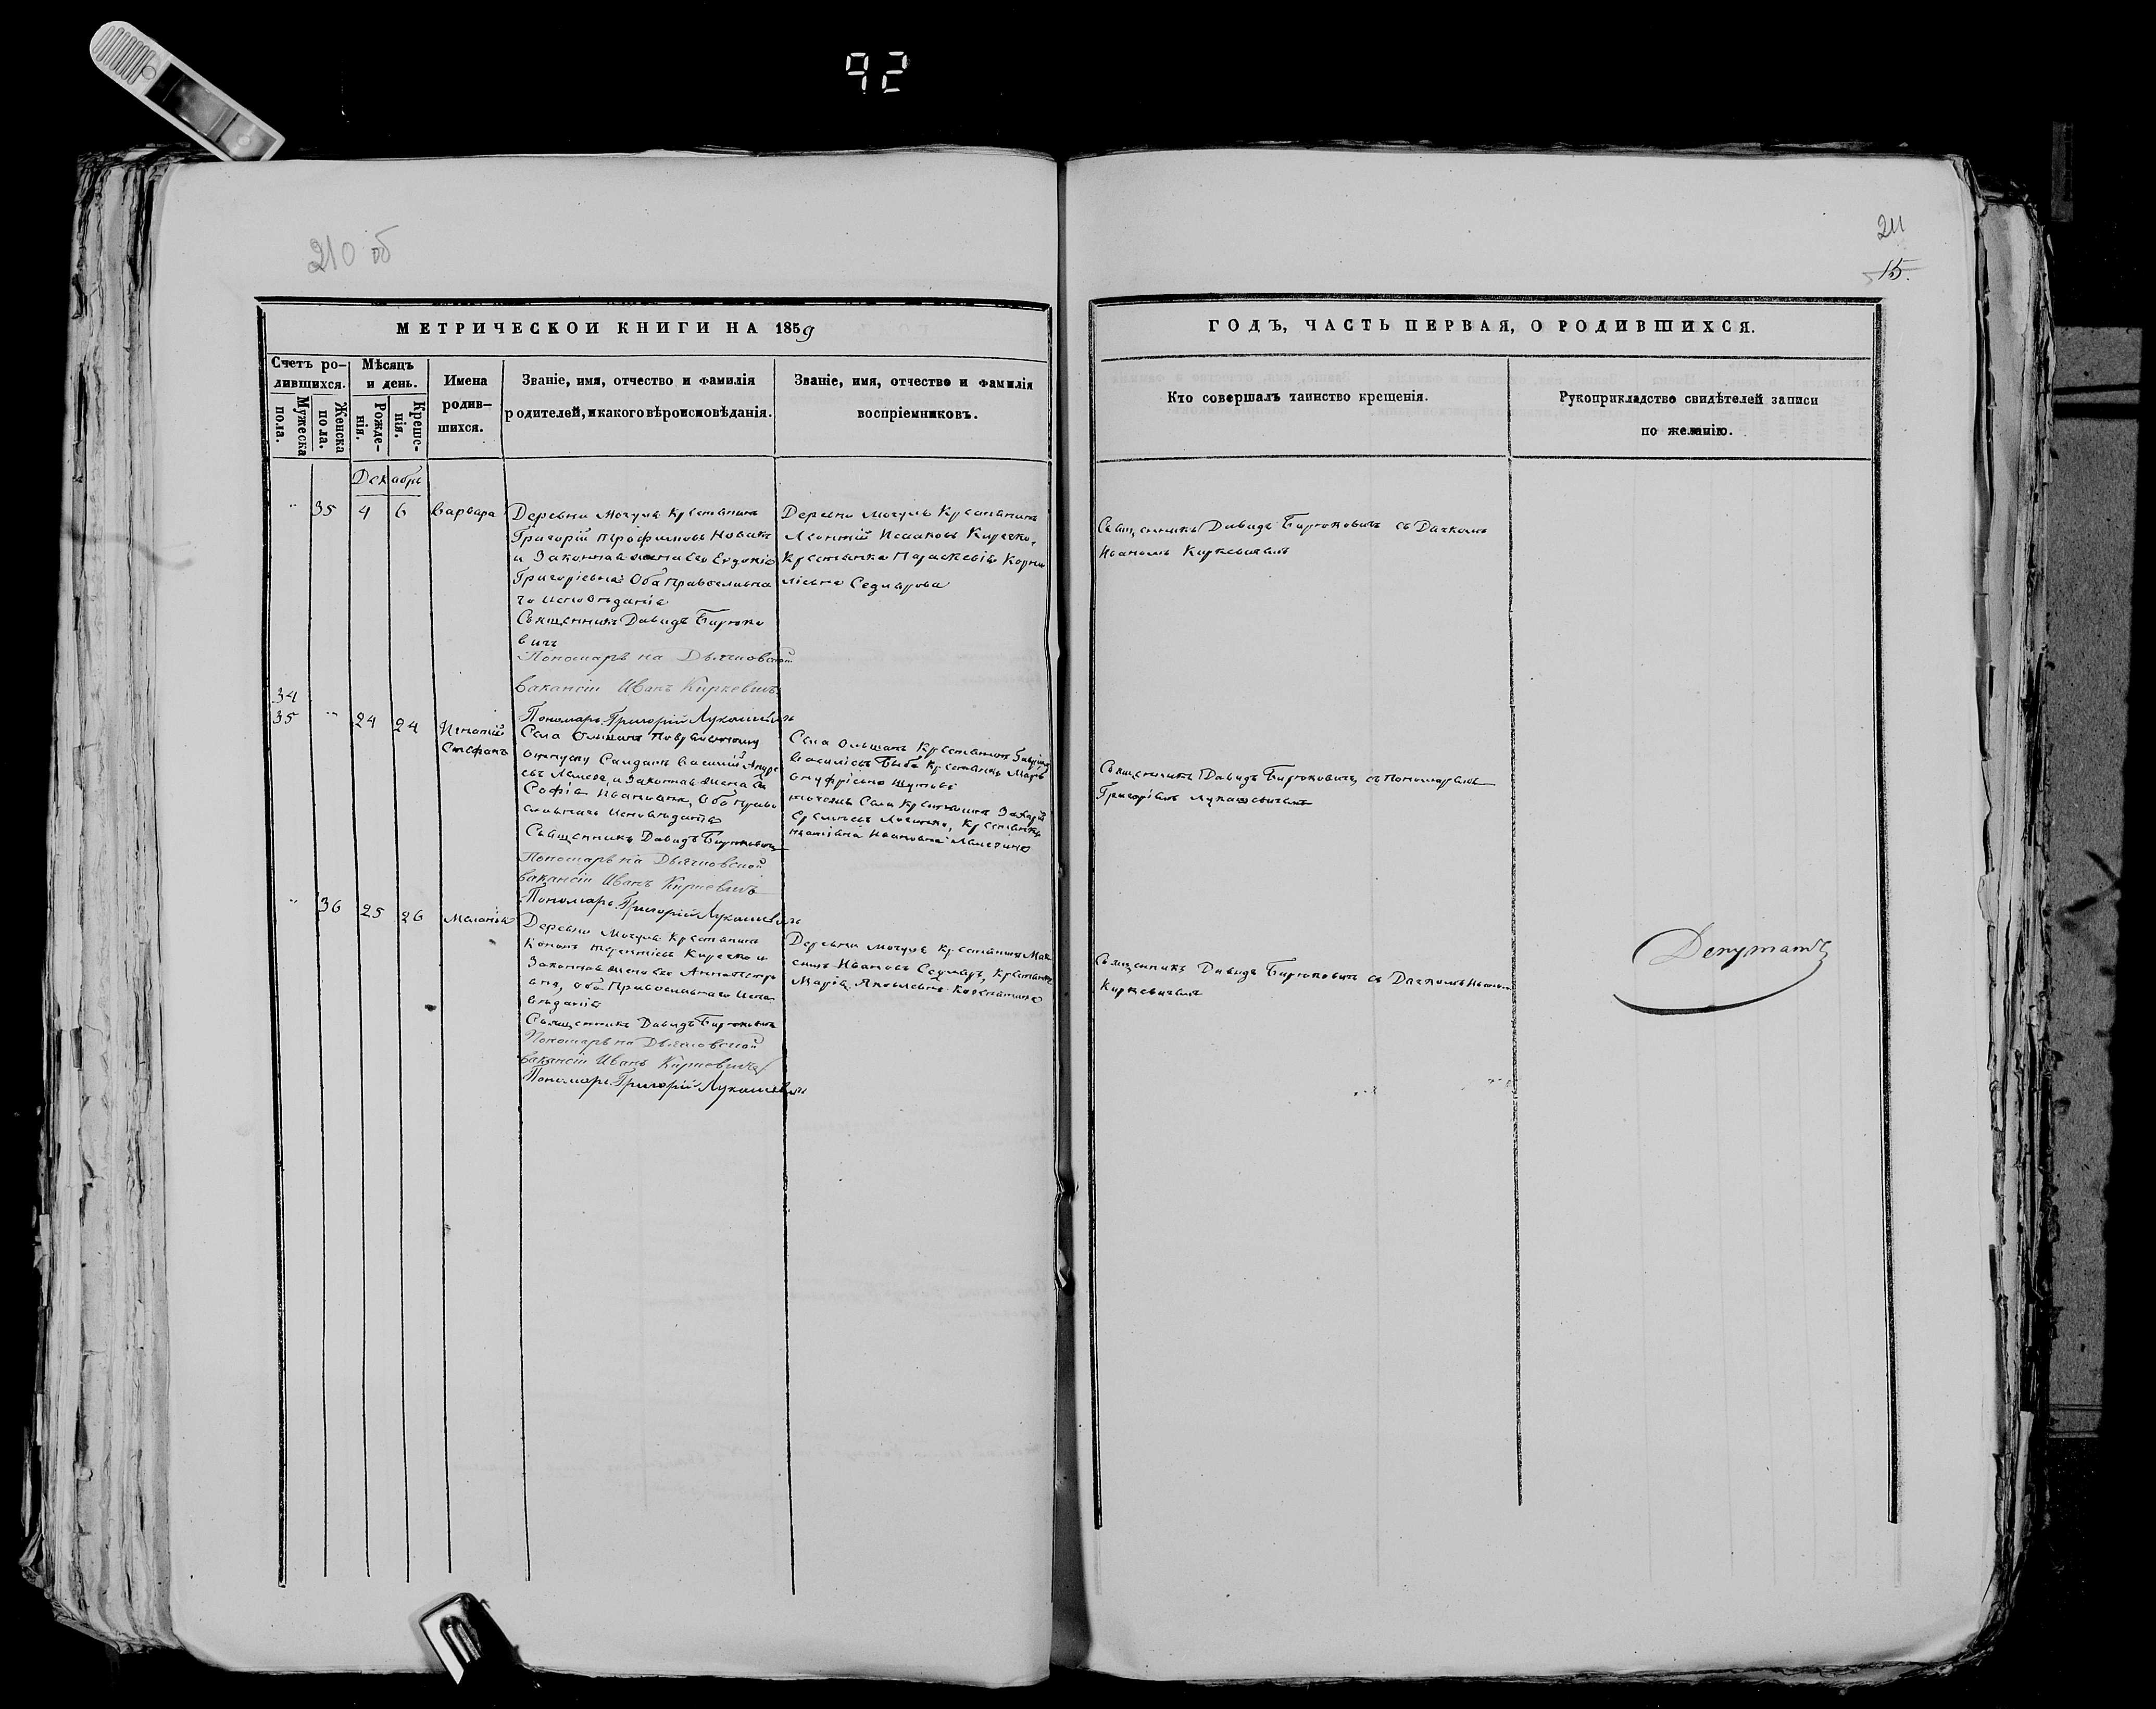 92
210 об
211
15.
МЕТРИЧЕСКОЙ КНИГИ НА 1859
ГОДЪ, ЧАСТЬ ПЕРВАЯ, О РОДИВШИХСЯ.
Счетъ ро-
дившихся.
Мужеска
пола.
Женска
пола.
Мѣсяцъ
и день.
Рожде-
нія.
Креще-
нія.
Имена
родив-
шихся.
Званіе, имя, отчество и фамилія
родителей, и какого вѣроисповѣданія.
Званіе, имя, отчество и фамилія
воспріемниковъ.
Кто совершалъ таинство крещенія.
Рукоприкладство свидѣтелей записи
по желанію.
Декабрь
" 35 4 6 Варвара
Деревни Могуль Крестьянинъ
Григорій Трофимовъ Новикъ
и Законная жена его Евдокія
Григоріевна Оба Православна
го исповѣданія
Священникъ Давидъ Бирюко
вичъ
Пономарь на Дьячковской
вакансіи Иванъ Киркевичъ
Пономарь Григорій Лукашевичъ
Деревни Могуль Крестьянинъ
Леонтій Исаковъ Киречко,
Крестьянка Параскевія Корни
ліевна Седлярова
Священникъ Давидъ Бирюковичъ съ Дьячкомъ
Иваномъ Киркевичемъ
34
35 " 24 24 Игнатій
Стефанъ
Села Ольшанъ
отпуску Солдатъ Василій Андре
евъ и Законная жена его
Софія Ивановна, Оба Право
славнаго исповѣданія
Священникъ Давидъ Бирюковичъ
Пономарь на Дьячковской
вакансіи Иванъ Киркевичъ
Пономарь Григорій Лукашевичъ
Села Ольшанъ Крестьянинъ
Василіевъ Крестьянка Марія
Онуфріевна
Села Крестьянинъ Захарій
Крестьянка
Ивановна
Священникъ Давидъ Бирюковичъ, съ Пономаремъ
Григоріемъ Лукашевичемъ
" 36 25 26 Меланія
Деревни Могуль Крестьянинъ
Кононъ Терентіевъ Киречко и
Законная жена его Анна Петро
вна, оба Православнаго Испо
вѣданія
Священникъ Давидъ Бирюковичъ
Пономарь на Дьячковской
вакансіи Иванъ Киркевичъ
Пономарь Григорій Лукашевичъ
Деревни Могуль Крестьянинъ Мак
симъ Ивановъ Седляръ, Крестьянка
Марія Яковлевна
Священникъ Давидъ Бирюковичъ съ Дьячкомъ Иваномъ
Киркевичемъ
Депутатъ